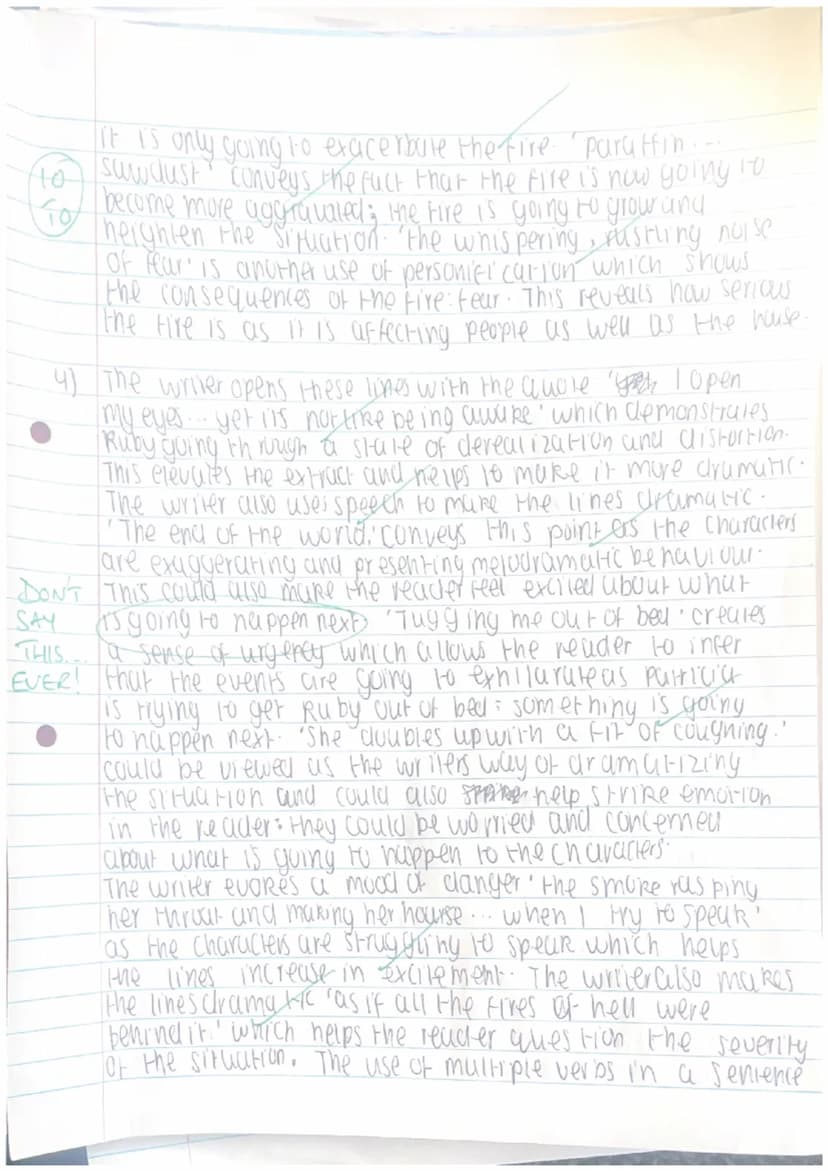 it is only going to exacerbate the fire. 'paraffin...
sawdust' conveys the fact that the fire is now going to
become more aggravated; the fire is going to grow and
heighten the situation. 'the whispering, rustling noise
of fear' is another use of personification which shows
the consequences of the fire: fear. This reveals how serious
the fire is as it is affecting people as well as the house.
10
10
4) The writer opens these lines with the quote 'I open
my eyes... yet its not like being awake' which demonstrates
Ruby going through a state of derealization and distortion.
This elevates the extract and helps to make it more dramatic.
The writer also uses speech to make the lines dramatic.
'The end of the world,' conveys this point as the characters
are exaggerating and presenting melodramatic behaviour.
This could also make the reader feel excited about what
is going to happen next. 'Tugging me out of bed' creates
a sense of urgency which allows the reader to infer
that the events are going to exhilarate as Patricia
is trying to get Ruby out of bed: something is going
to happen next. 'She doubles up with a fit of coughing.'
could be viewed as the writers way of dramatizing
the situation and could also help strike emotion
in the reader: they could be worried and concerned
about what is going to happen to the characters.
The writer evokes a mood of danger 'the smoke rasping
her throat and making her hourse... when I try to speak'
as the characters are struggling to speak which helps
the lines increase in excitement. The writer also makes
the lines dramatic 'as if all the fires of hell were
behind it.' which helps the reader question the severity
of the situation. The use of multiple verbs in a sentence
DON'T
SAY
THIS...
EVER!